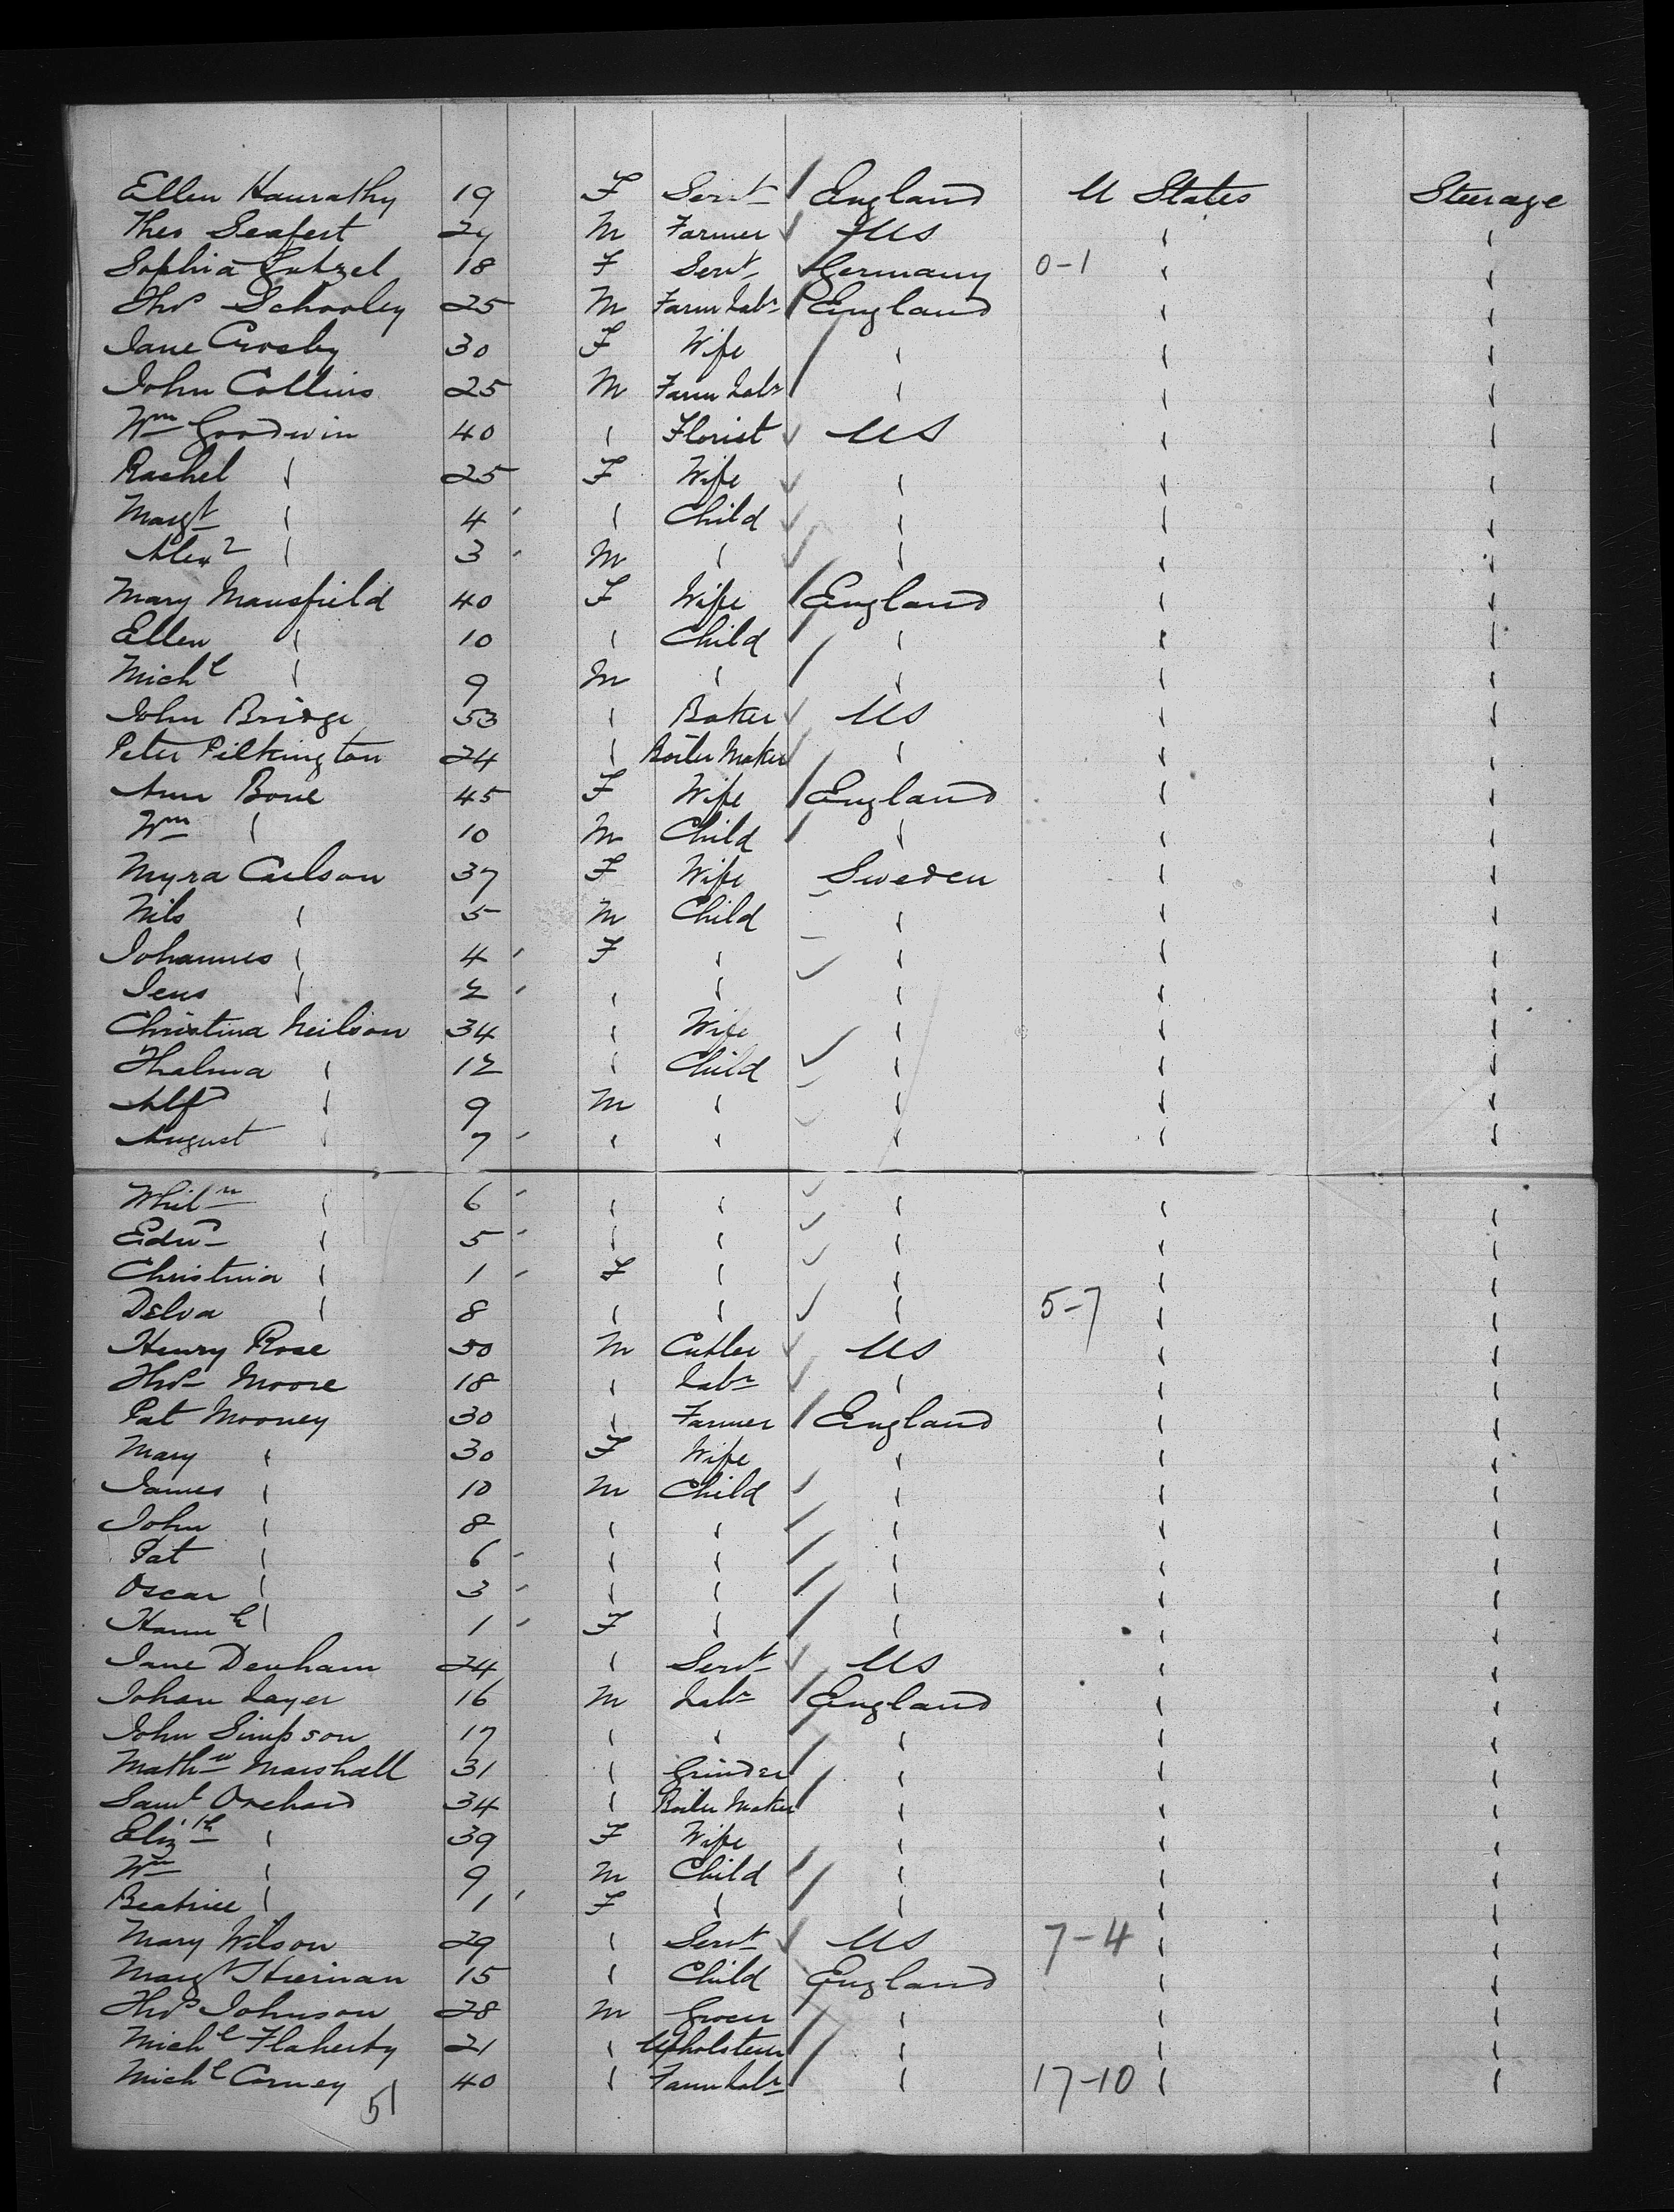 Ellen Hanrathy 19 F Servt England U States Steerage
Theo Seafert 24 M Farmer US " "
Sophia 18 F Servt Germany 0-1 " "
Thos Schooley 25 M Farm Labr England " "
Jane Crosby 30 F Wife " " "
John Collins 25 M Farm Labr " " "
Wm Goodwin 40 " Florist US " "
Rachel " 25 F Wife " " "
Margt " 4 " Child " " "
Alexr " 3 M " " " "
Mary Mansfield 40 F Wife England " "
Ellen " 10 " Child " " "
Michl " 9 M " " " "
John Bridge 53 " Baker US " "
Peter Pilkington 24 " Boiler Maker " " "
Ann Bone 45 F Wife England " "
Wm " 10 M Child " " "
Myra Carlson 37 F Wife Sweden " "
Nils " 5 M Child " " "
Johannes " 4 F " " " "
Jens " 2 " " " " "
Christina Neilson 34 " Wife " " "
Thalma " 12 " Child " " "
Alfd " 9 M " " " "
August " 7 " " " " "
Whilm " 6 " " " " "
Edwd " 5 " " " " "
Christina " 1 F " " " "
Delva " 8 " " " 5-7 " "
Henry Rose 50 M Cutler US " "
Thos Moore 18 " Labr " " "
Pat Mooney 30 " Farmer England " "
Mary " 30 F Wife " " "
James " 10 M Child " " "
John " 8 " " " " "
Pat " 6 " " " " "
Oscar " 3 " " " " "
Hannh " 1 F " " " "
Jane Denham 24 " Servt US " "
Johan Layer 16 M Labr England " "
John Simpson 17 " " " " "
Mathw Marshall 31 " Grinder " " "
Saml Orchard 34 " Boiler Maker " " "
Elizth " 39 F Wife " " "
Wm " 9 M Child " " "
Beatrice " 1 F " " " "
Mary Wilson 29 " Servt US 7-4 " "
Margt Hiernan 15 " Child England " "
Thos Johnson 28 M Grocer " " "
Michl Flaherty 21 " Upholsterer " " "
Michl Carney 40 " Farm Labr " 17-10 " "
51